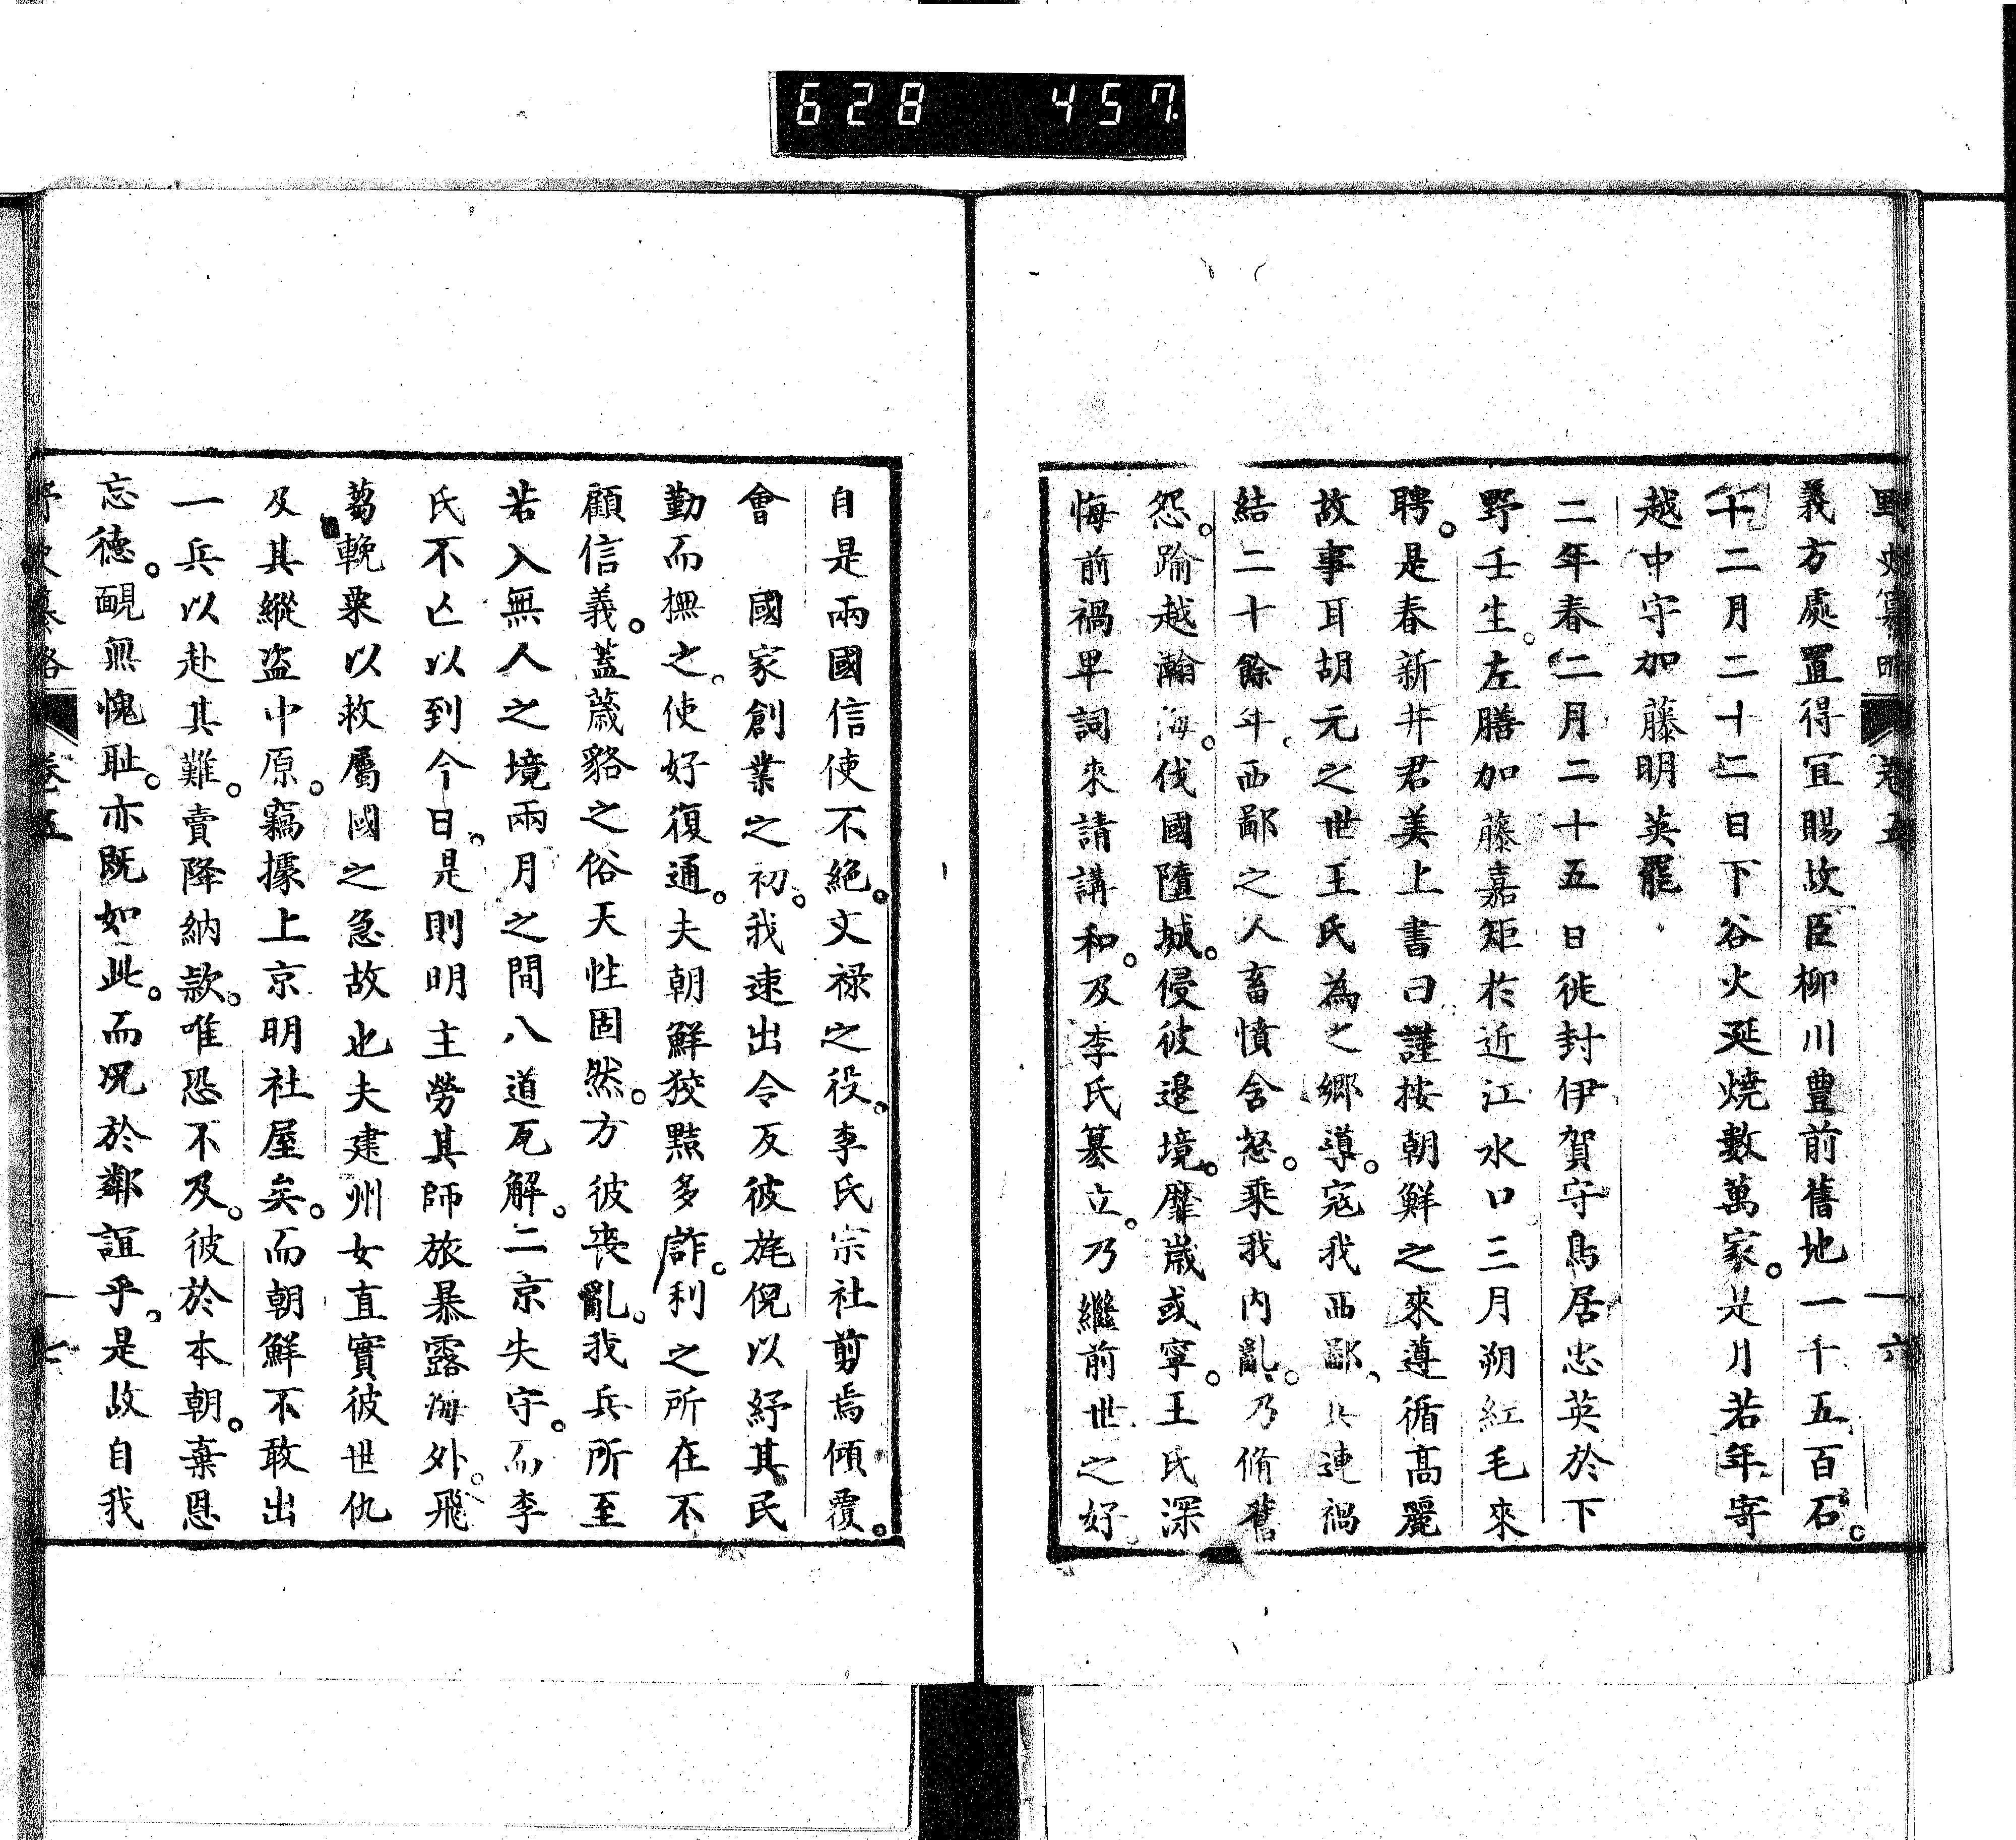 628 457.
野史纂略 卷五 一六
義方處置得宜賜故臣柳川豊前舊地一千五百石。
十二月二十二日下谷火延燒數萬家。是月若年寄
越中守加藤明英罷
二年春二月二十五日徙封伊賀守鳥居忠英於下
野壬生。左膳加藤嘉矩於近江水口三月朔紅毛來
聘。是春新井君美上書曰謹按朝鮮之來遵循髙麗
故事耳胡元之世王氏為之郷導。寇我西鄙、兵連禍
結二十餘年、西鄙之人畜憤含怒。乘我内亂。乃脩舊
怨。踰越瀚海。伐國隳城。侵彼邊境。靡歳或寧。王氏深
悔前禍卑詞來請講和。及李氏簒立。乃繼前世之好
自是兩國信使不絶。文禄之役。李氏宗社剪焉傾覆。
會 國家創業之初。我速出令反彼旄倪以紓其民
勤而撫之。使好復通。夫朝鮮狡黠多詐。利之所在不
顧信義。蓋薉貉之俗天性固然。方彼喪亂。我兵所至
若入無人之境兩月之間八道瓦解。二京失守。而李
氏不亡以到今日。是則明主勞其師旅暴露海外。飛
蒭輓粟以救屬國之急故也夫建州女直實彼世仇
及其縱盜中原。竊據上京明社屋矣。而朝鮮不敢出
一兵以赴其難。賣降納款。唯恐不及。彼於本朝。棄恩
忘德。靦無愧耻。亦既如此。而况於鄰誼乎。是故自我
野史纂略 卷五 一七